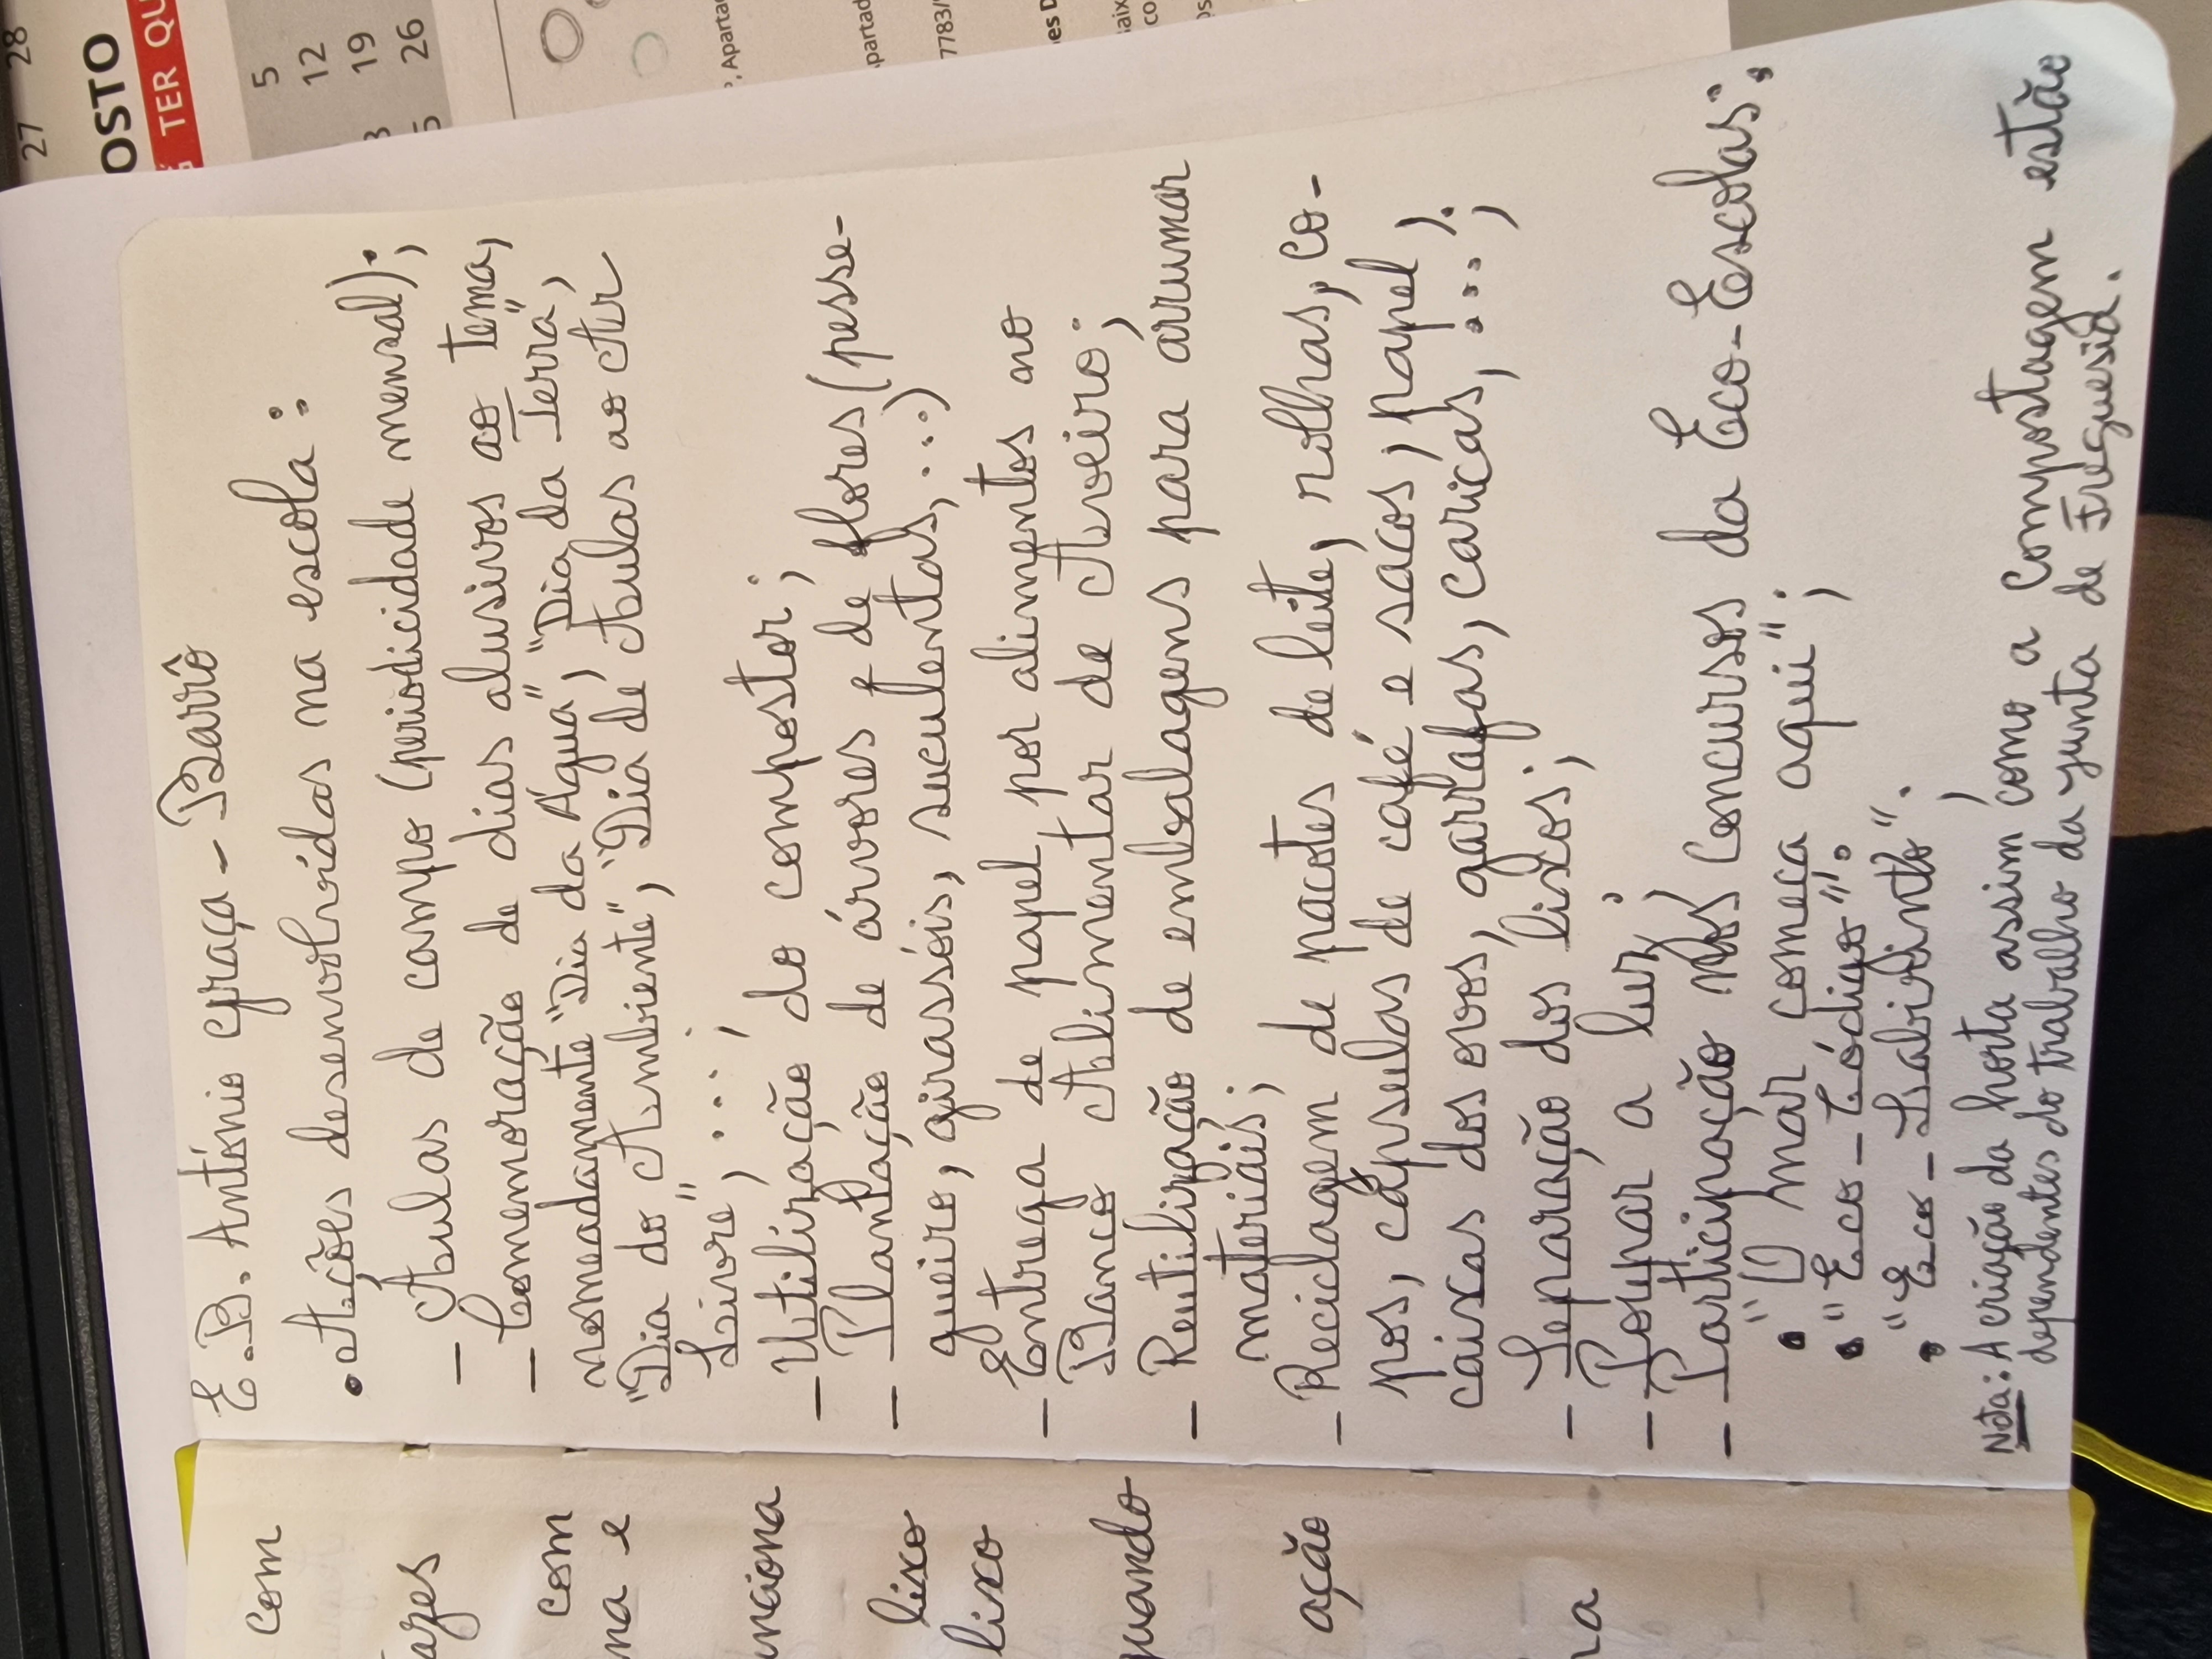 E.B. António Graça - Barrô
• Ações desenvolvidas na escola:
- Aulas de campo (periodicidade mensal);
- Comemoração de dias alusivos ao tema,
nomeadamente "Dia da Água", "Dia da Terra",
"Dia do Ambiente", "Dia de Aulas ao Ar
Livre", ...;
- Utilização do compostor;
- Plantação de árvores e de flores (pesse-
gueiro, girassóis, suculentas, ...)
- Entrega de papel por alimentos no
Banco Alimentar de Aveiro;
- Reutilização de embalagens para arrumar
materiais;
- Reciclagem de pacotes de leite, rolhas, co-
pos, cápsulas de café e sacos, papel,
caixas dos ovos, garrafas, caricas, ...);
- Separação dos lixos;
- Poupar a luz;
- Participação nos concursos da Eco-Escolas:
• "O mar começa aqui";
• "Eco-Código";
• "Eco-Labirinto".
Nota: A criação da horta, assim como a compostagem estão
dependentes do trabalho da Junta de Freguesia.
com
azes
com
na e
nciona
lixo
lixo
quando
ação
na
27 28
OSTO
TER QU
5
12
19
26
P, Aparta
partad
7783/
es D
aix
co
os